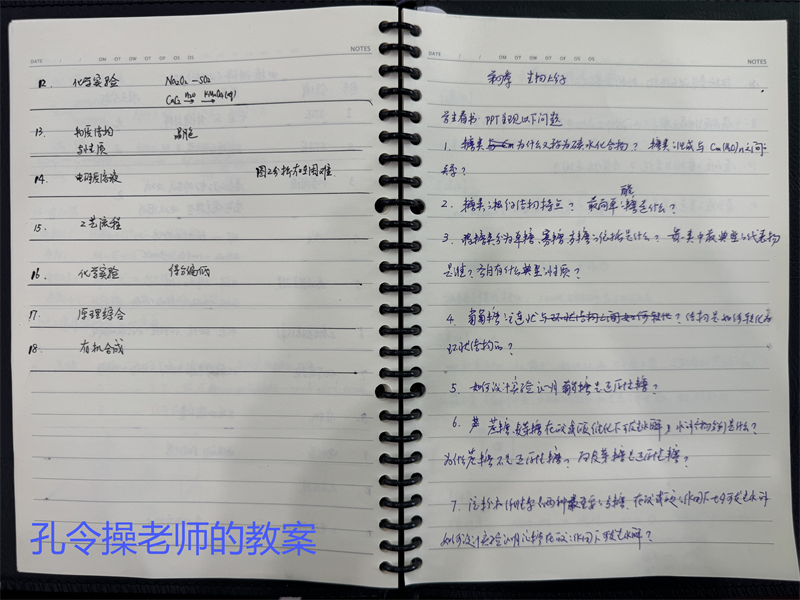 DATE NOTES
12. 化学实验 Na₂O₂ — SO₂
CaC₂ →(H₂O) →(KMnO₄(aq))
13. 物质结构
与性质
14. 电解质溶液 图2分析存在困难
15. 工艺流程
16. 化学实验 得分偏低
17. 原理综合
18. 有机合成
孔令操老师的教案
DATE NOTES
第四章 生物大分子
学生看书、PPT 以下问题
1. 糖类为什么又称为碳水化合物？糖类的组成与 Cm(H2O)n之间的
关系？
2. 糖类的 结构特点？最简单的醛糖是什么？
3. 把糖类分为单糖、寡糖、多糖的依据是什么？每一类中最典型的代表物
是谁？各自有什么典型的性质？
4. 葡萄糖的链状与环状结构之间如何转化？结构是如何转化为
环状结构的？
5. 如何设计实验证明葡萄糖是还原性糖？
6. 蔗糖、麦芽糖在 催化下发生水解，水解的 是什么？
为什么蔗糖不是还原性糖？而麦芽糖是还原性糖？
7. 淀粉和纤维素是两种最重要的多糖，在酸或 的作用下也可发生水解
如何设计实验证明淀粉在酸的作用下可发生水解？